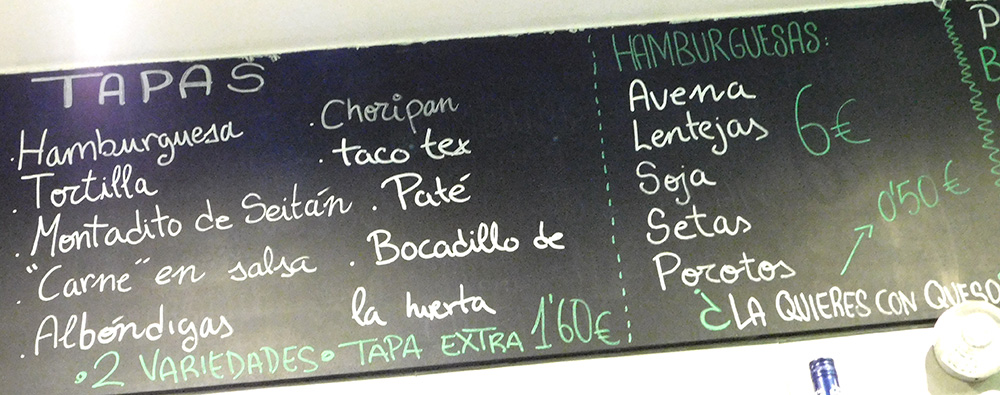 TAPAS
.Hamburguesa
.Tortilla
.Montadito de Seitán
."Carne" en salsa
.Albóndigas
.Choripan
.taco tex
.Paté
.Bocadillo de
la huerta
.2 VARIEDADES. TAPA EXTRA 1'60€
HAMBURGUESAS:
Avena
Lentejas 6€
Soja
Setas
Porotos
0'50€
¿LA QUIERES CON QUESO
P
B